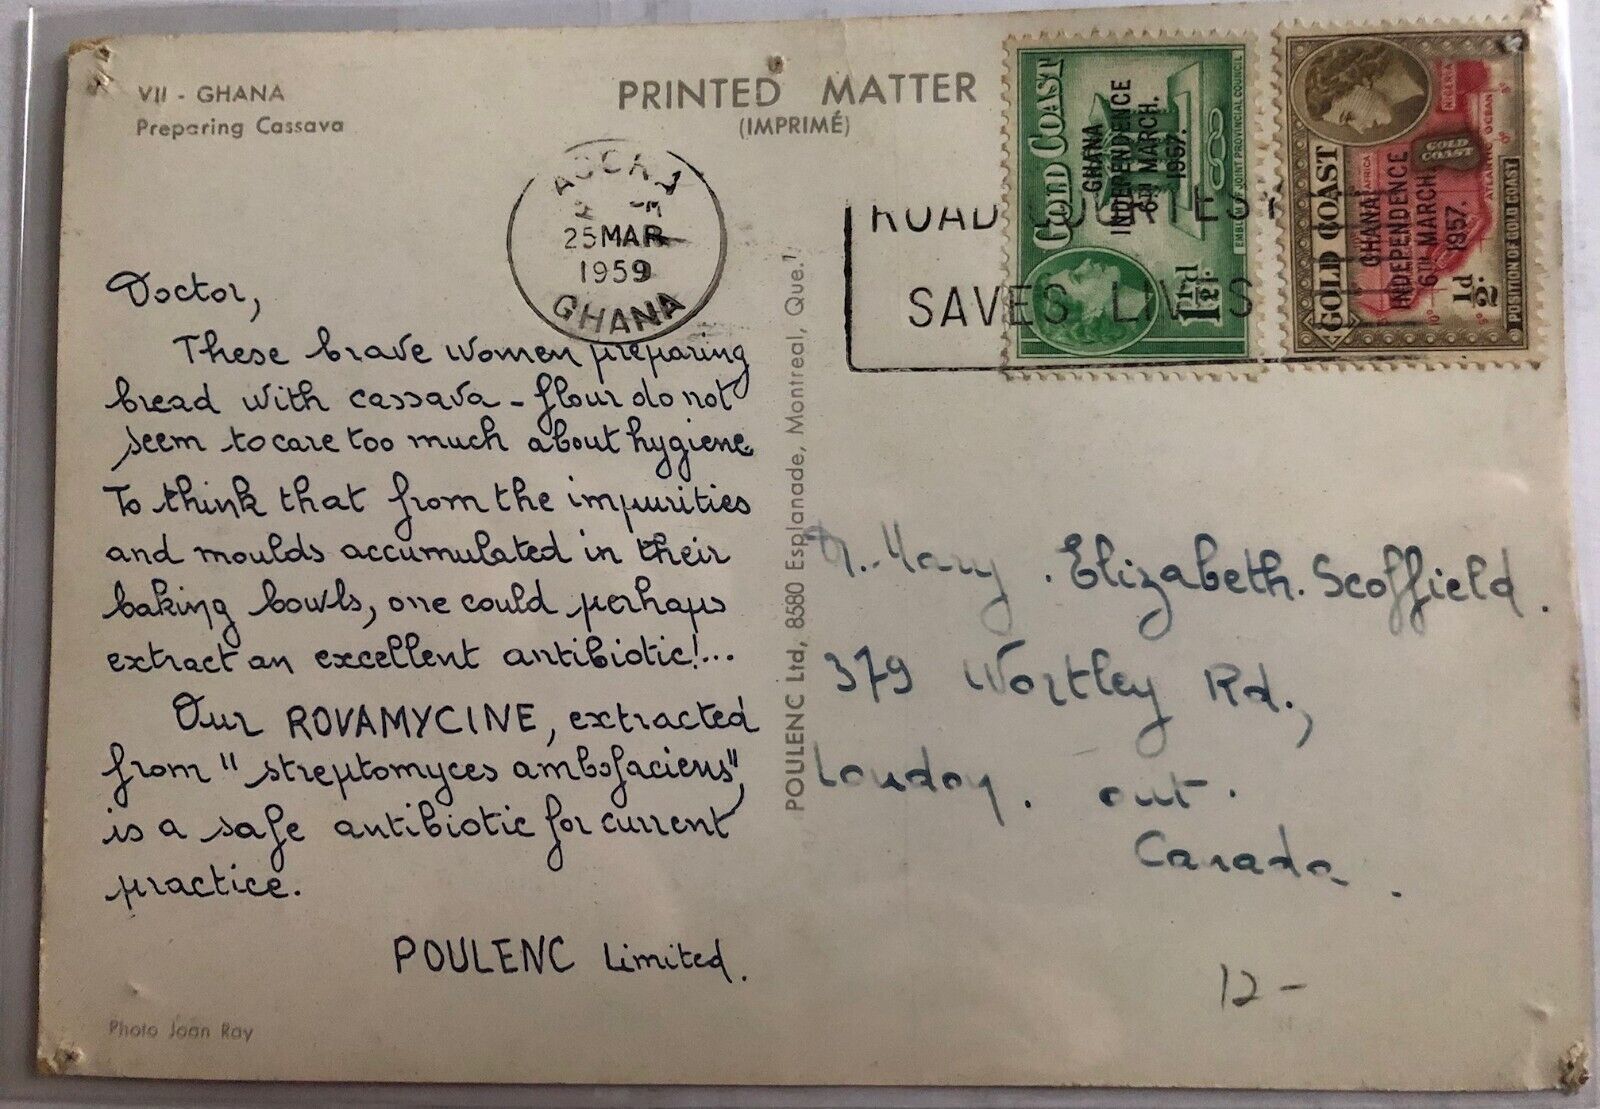 VII - GHANA
Preparing Cassava
PRINTED MATTER
(IMPRIMÉ)
ACCRA
25 MAR
1959
GHANA
ROAD COURTESY
SAVES LIVES
GOLD COAST
GHANA
INDEPENDENCE
6TH MARCH.
1957.
EMBLEM OF JOINT PROVINCIAL COUNCIL
1½d.
GOLD COAST
GHANA
INDEPENDENCE
6TH MARCH.
1957.
NIGERIA
GOLD
COAST
AFRICA
ATLANTIC OCEAN
½d
POSITION OF GOLD COAST
Doctor,
These brave women preparing
bread with cassava - flour do not
seem to care too much about hygiene
To think that from the impurities
and moulds accumulated in their
baking bowls, one could perhaps
extract an excellent antibiotic!...
Our ROVAMYCINE, extracted
from "streptomyces ambofaciens",
is a safe antibiotic for current
practice.
POULENC Limited.
Photo Joan Ray
POULENC Ltd, 8580 Esplanade, Montreal, Que.
Mary. Elizabeth. Scoffield.
379 Wortley Rd.,
London. Ont.
Canada.
12-